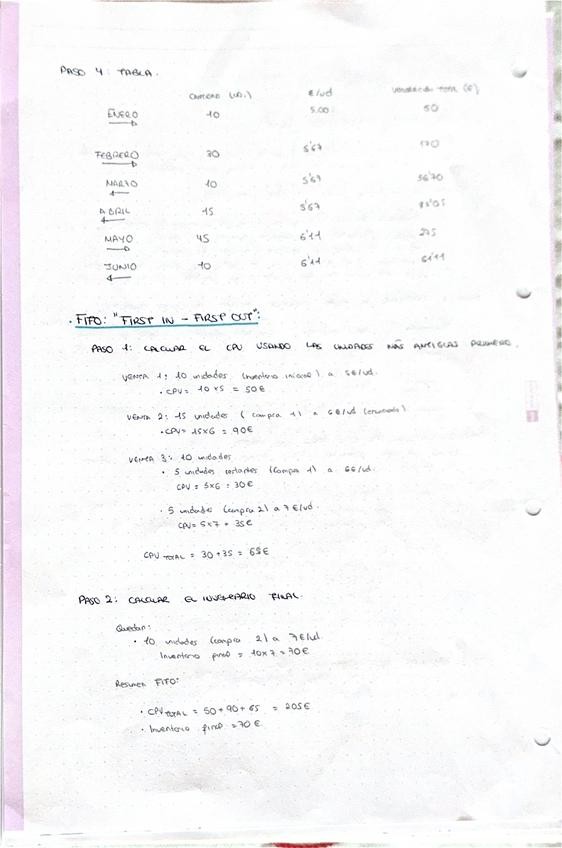 PASO 4: TABLA.
CANTIDAD (UD.) €/ud VALORACIÓN TOTAL (€)
ENERO 10 5.00 50
FEBRERO 30 5'67 170
MARZO 10 5'67 56'70
ABRIL 15 5'67 85'05
MAYO 45 6'11 275
JUNIO 10 6'11 61'11
· FIFO: "FIRST IN - FIRST OUT":
PASO 1: CALCULAR EL CPV USANDO LAS UNIDADES MÁS ANTIGUAS PRIMERO.
VENTA 1: 10 unidades (inventario inicial) a 5€/ud.
· CPV = 10 x 5 = 50€
VENTA 2: 15 unidades (compra 1) a 6€/ud
· CPV = 15x6 = 90€
VENTA 3: 10 unidades
· 5 unidades restantes (compra 1) a 6€/ud.
CPV = 5x6 = 30€
· 5 unidades (compra 2) a 7€/ud.
CPV = 5x7 = 35€
CPV TOTAL = 30 + 35 = 65€
PASO 2: CALCULAR EL INVENTARIO FINAL.
Quedan:
· 10 unidades (compra 2) a 7€/ud.
Inventario final = 10x7 = 70€
Resumen FIFO:
· CPV TOTAL = 50 + 90 + 65 = 205€
· Inventario final = 70€.